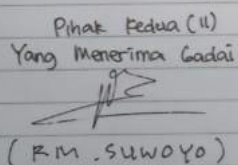 Pihak Kedua (II)
Yang Menerima Gadai
(RM. SUWOYO)